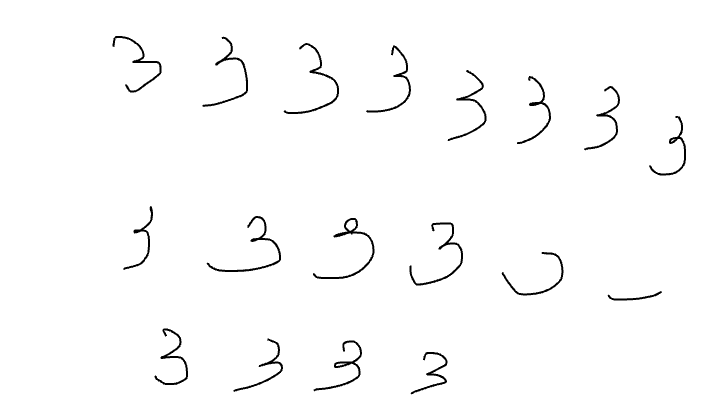 3 3 3 3 3 3 3 3
3 3 3 3
3 3 3 3